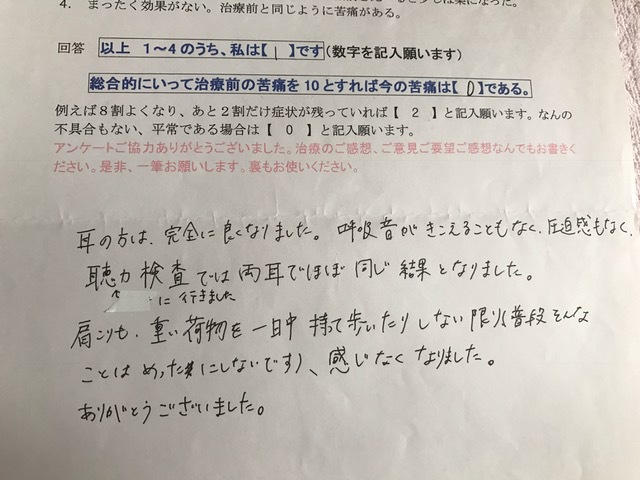 4. まったく効果がない。治療前と同じように苦痛がある。
回答 以上 1～4のうち、私は【 1 】です(数字を記入願います)
総合的にいって治療前の苦痛を10とすれば今の苦痛は【 0 】である。
例えば８割よくなり、あと２割だけ症状が残っていれば【 2 】と記入願います。なんの
不具合もない、平常である場合は【 0 】と記入願います。
アンケートご協力ありがとうございました。治療のご感想、ご意見ご要望ご感想なんでもお書きく
ださい。是非、一筆お願いします。裏もお使いください。
耳の方は、完全に良くなりました。呼吸音がきこえることもなく、圧迫感もなく、
聴力検査では両耳でほぼ同じ結果となりました。
に行きました
肩こりも、重い荷物を一日中持って歩いたりしない限り(普段そんな
ことはめったにしないです)、感じなくなりました。
ありがとうございました。